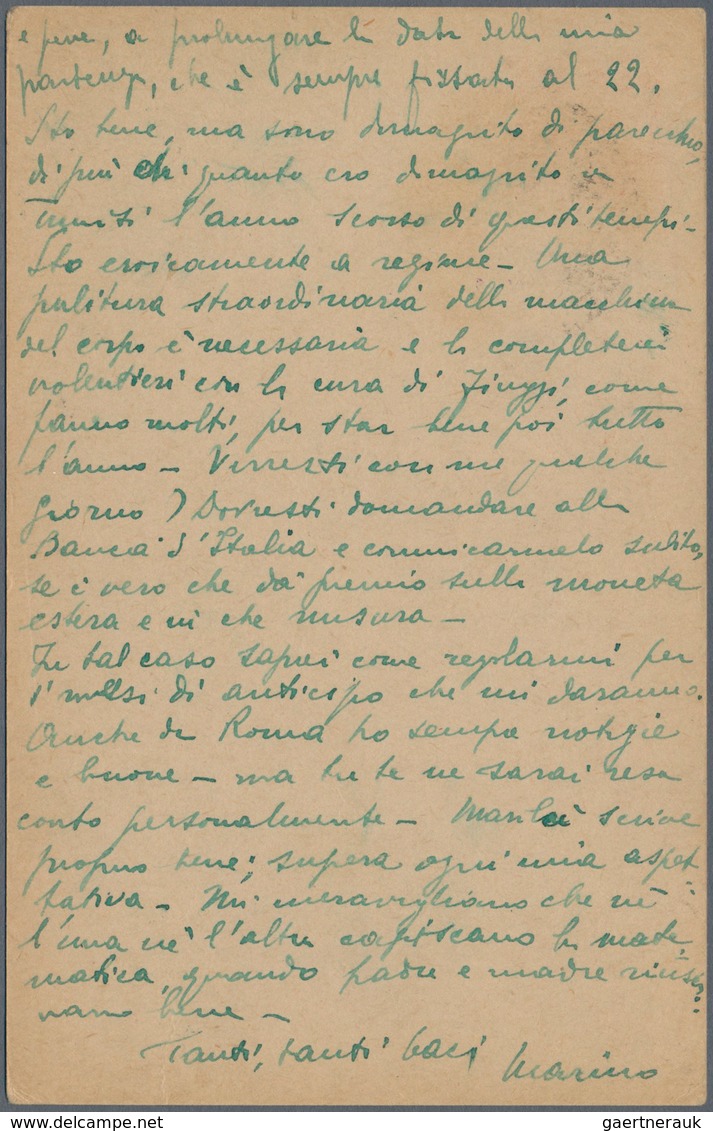 e pene, a prolungare la data della mia
partenza, che è sempre fissata al 22.
Sto bene, ma sono dimagrito di parecchio,
di più di quanto ero dimagrito a
l'anno scorso di questi tempi -
Sto eroicamente a regime - Una
pulitura straordinaria della macchina
del corpo è necessaria e la completerei
volentieri con la cura di Fiuggi, come
fanno molti, per star bene poi tutto
l'anno - Verresti con me qualche
giorno? Dovresti domandare alla
Banca d'Italia e comunicarmelo subito,
se è vero che dà premio sulla moneta
estera e in che misura -
In tal caso saprei come regolarmi per
di anticipo che mi daranno.
Anche da Roma ho sempre notizie
e buone - ma tu te ne sarai resa
conto personalmente - Marilù scrive
proprio bene; supera ogni mia aspet-
tativa - Mi meraviglio che nè
l'una nè l'altra capiscano la mate-
matica, quando padre e madre riusci-
vano bene -
Tanti, tanti baci
Marino
gaertnerauk